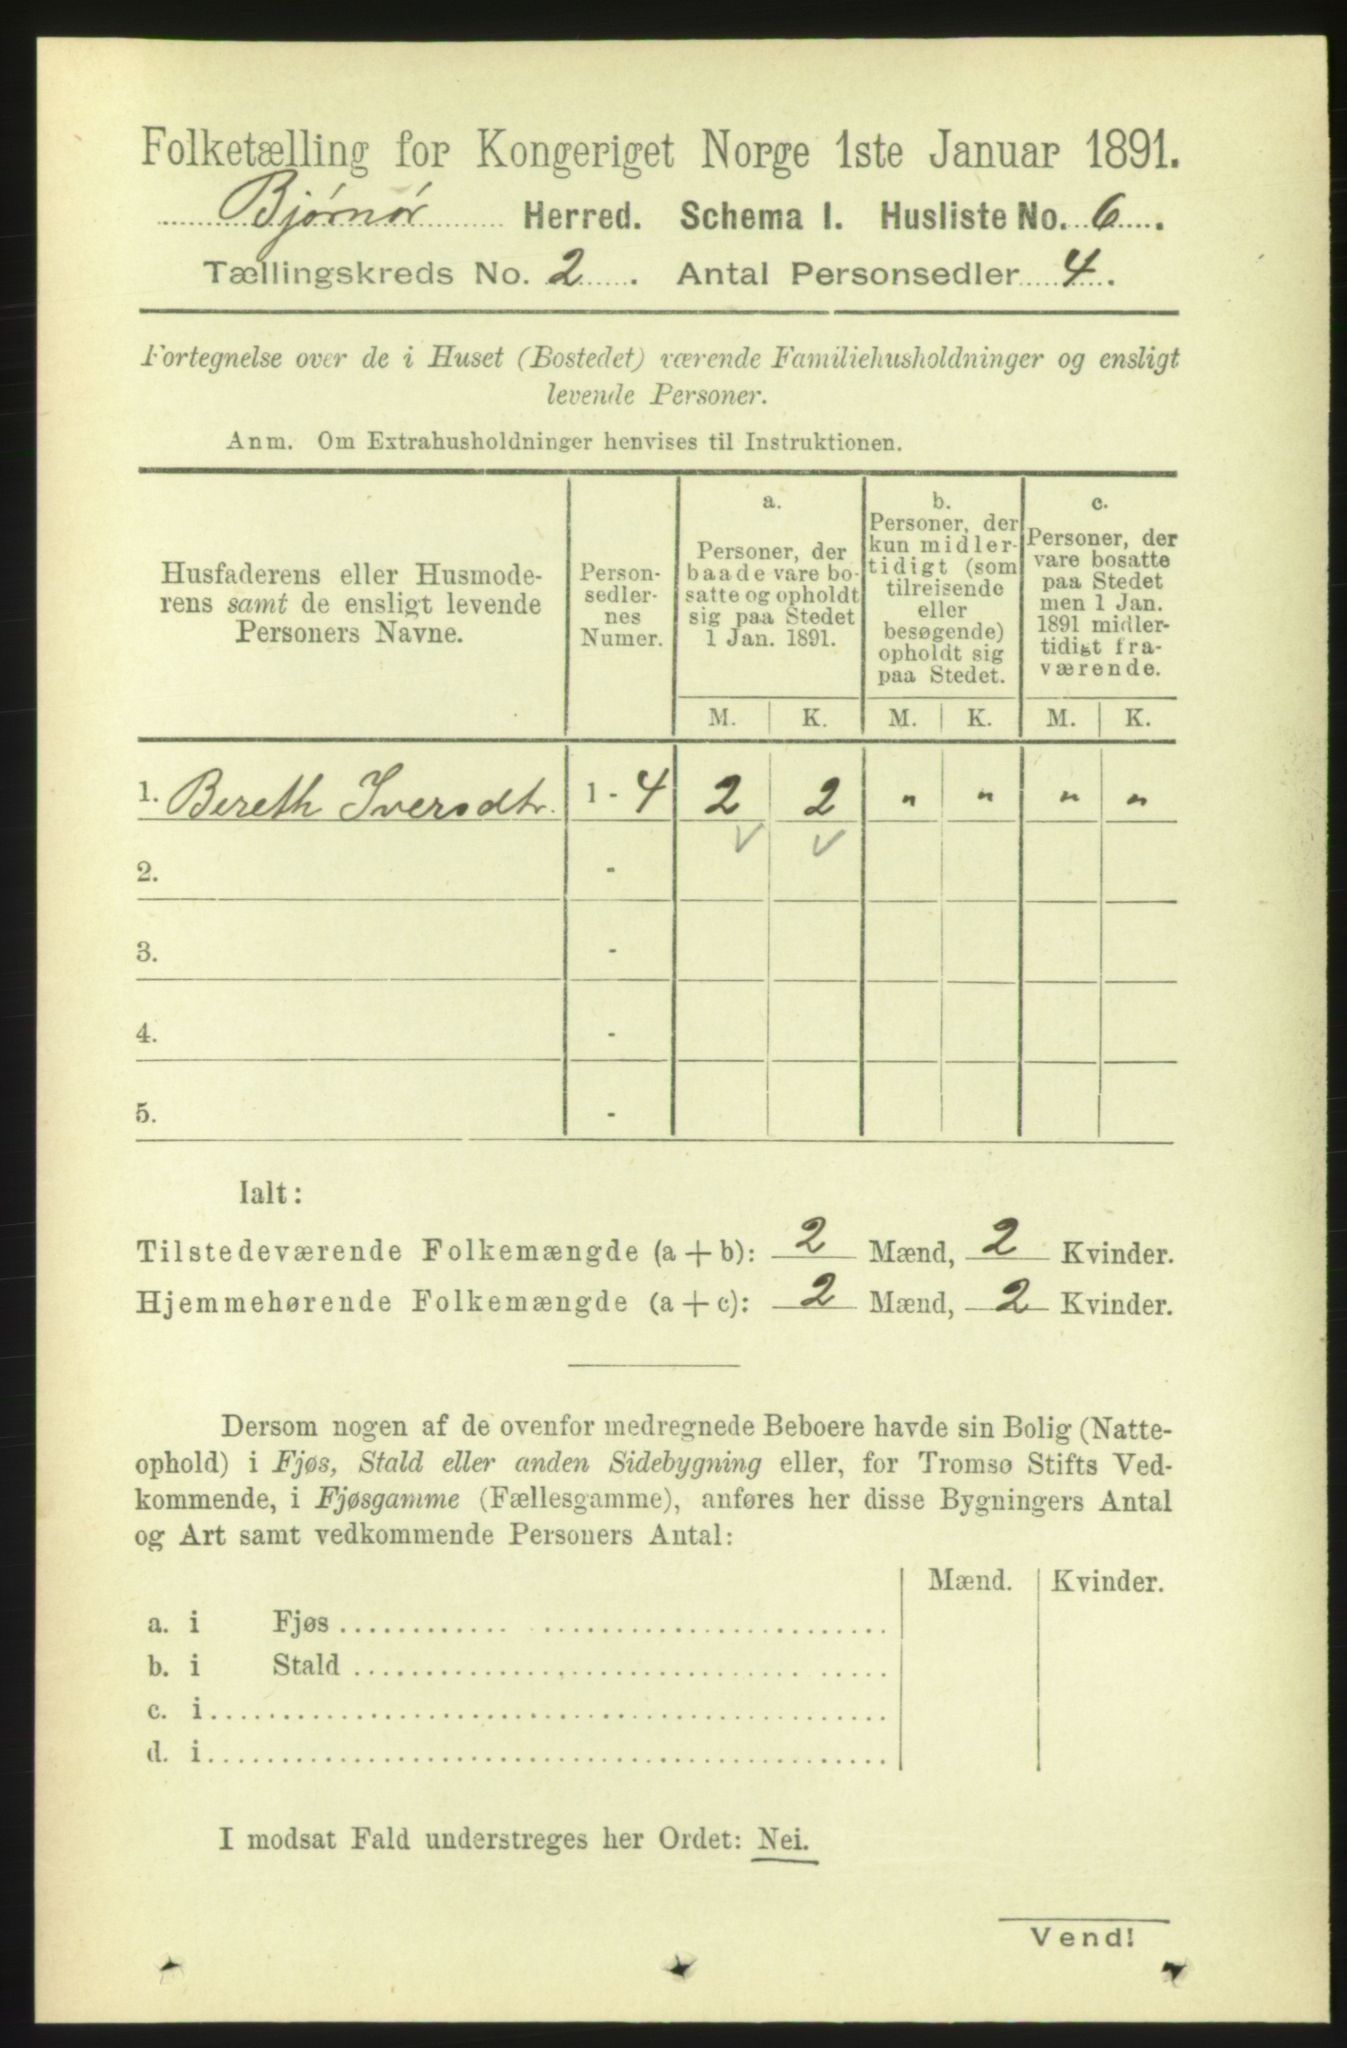 Folketælling for Kongeriget Norge 1ste Januar 1891.
Bjørnør Herred. Schema I. Husliste No. 6.
Tællingskreds No. 2. Antal Personsedler 4.
Fortegnelse over de i Huset (Bostedet) værende Familiehusholdninger og ensligt
levende Personer.
Anm. Om Extrahusholdninger henvises til Instruktionen.
Husfaderens eller Husmode-
rens samt de ensligt levende
Personers Navne.
Person-
sedler-
nes
Numer.
a.
Personer, der
baade vare bo-
satte og opholdt
sig paa Stedet
1 Jan. 1891.
b.
Personer, der
kun midler-
tidigt (som
tilreisende
eller
besøgende)
opholdt sig
paa Stedet.
c.
Personer, der
vare bosatte
paa Stedet
men 1 Jan.
1891 midler-
tidigt fra-
værende.
M. K. M. K. M. K.
1. Bereth Iversdtr. 1 - 4 2 2 " " " "
2. -
3. -
4. -
5. -
Ialt:
Tilstedeværende Folkemængde (a + b): 2 Mænd, 2 Kvinder.
Hjemmehørende Folkemængde (a + c): 2 Mænd, 2 Kvinder.
Dersom nogen af de ovenfor medregnede Beboere havde sin Bolig (Natte-
ophold) i Fjøs, Stald eller anden Sidebygning eller, for Tromsø Stifts Ved-
kommende, i Fjøsgamme (Fællesgamme), anføres her disse Bygningers Antal
og Art samt vedkommende Personers Antal:
Mænd. Kvinder.
a. i Fjøs
b. i Stald
c. i
d. i
I modsat Fald understreges her Ordet: Nei.
Vend!